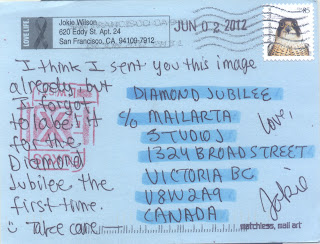 LOVE LIFE
Jokie Wilson
620 Eddy St. Apt. 24
San Francisco, CA 94109-7912
SAN FRANCISCO CA
JUN 02 2012
I think I sent you this image
already but
I forgot
to label it
for the
Diamond
Jubilee the
first time.
Take care
DIAMOND JUBILEE
c/o MAILARTA
STUDIO J
1324 BROAD STREET
VICTORIA BC
V8W2A9
CANADA
Love,
Jokie
matchless, mail art